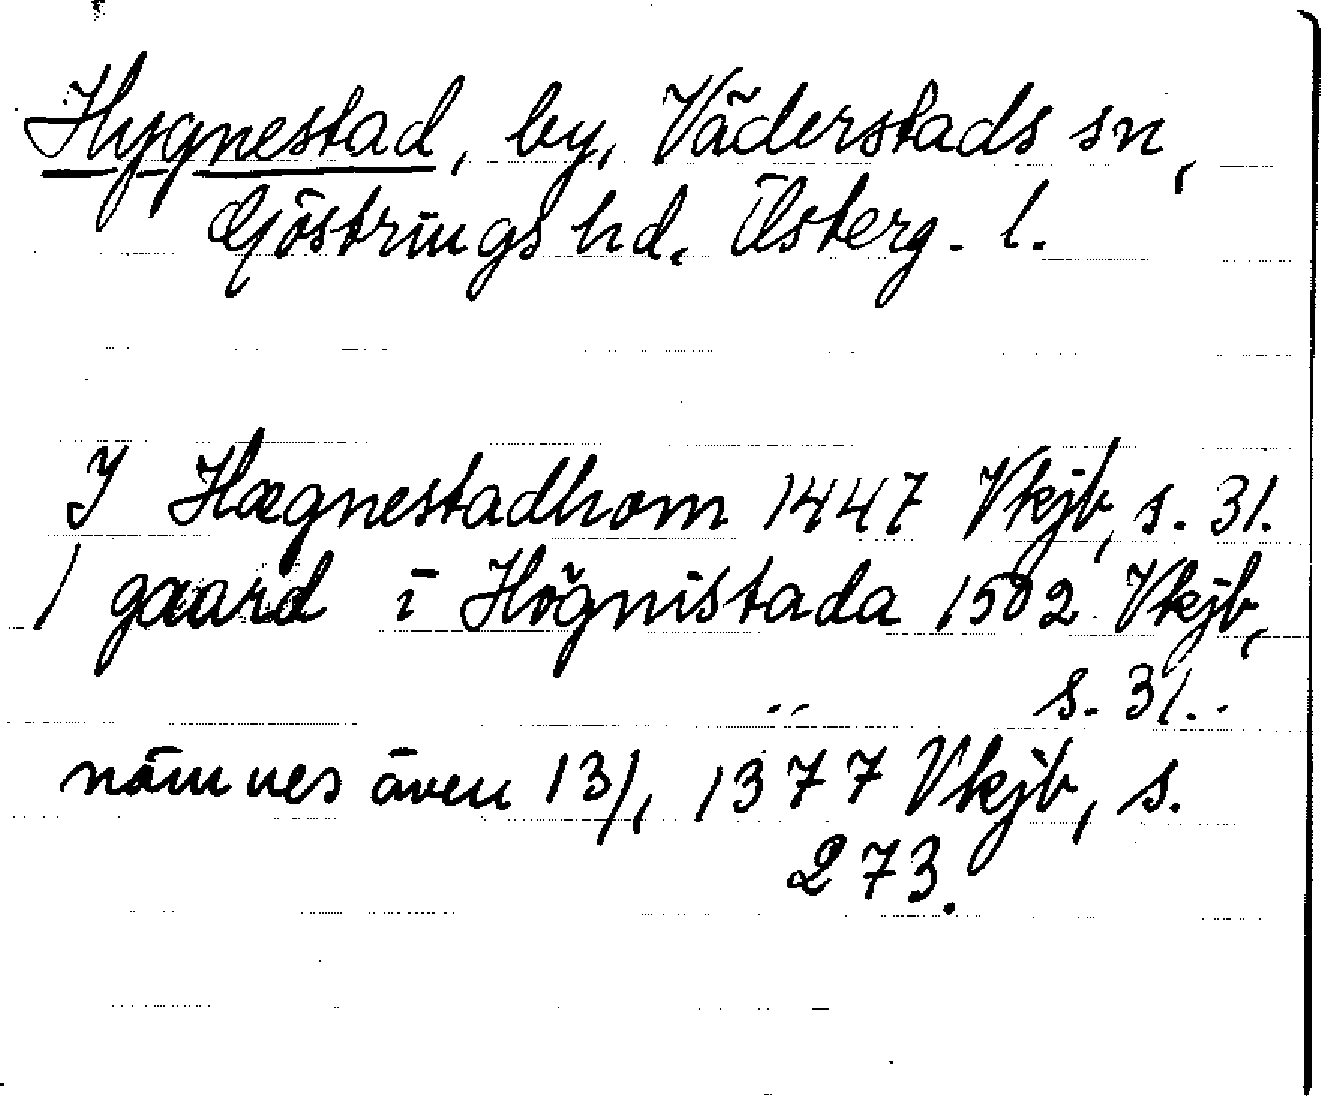 Hygnestad, by, Väderstads sn,
Gjöstrings hd. Österg. l.
I Hægnestadhom 1447 Vkjb, s. 31.
1 gaard i Högnistada 1502 Vkjb,
s. 31.
nämnes även 13/1 1377 Vkjb, s.
273.